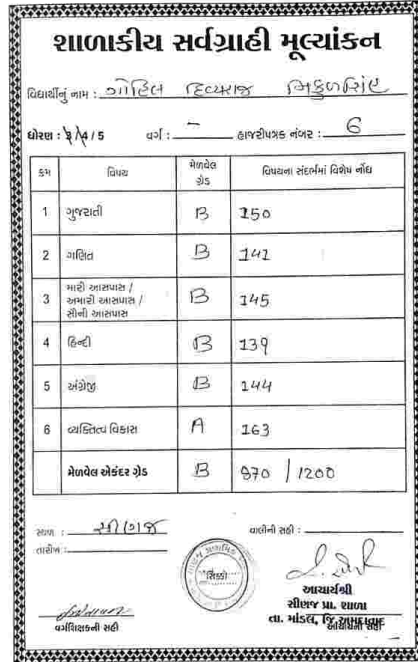 શાળાકીય સર્વગ્રાહી મૂલ્યાંકન
વિદ્યાર્થીનું નામ : ગોહિલ દિવ્યરાજ
ધોરણ : 3/4/5 વર્ગ : – હાજરીપત્રક નંબર : 6
ક્રમ વિષય મેળવેલ ગ્રેડ વિષયના સંદર્ભમાં વિશેષ નોંધ
1 ગુજરાતી B 150
2 ગણિત B 141
3 મારી આસપાસ / અમારી આસપાસ / સૌની આસપાસ B 145
4 હિન્દી B 139
5 અંગ્રેજી B 144
6 વ્યક્તિત્વ વિકાસ A 163
મેળવેલ એકંદર ગ્રેડ B 870 / 1200
સ્થળ : સીણજ વાલીની સહી :
તારીખ :
આચાર્યશ્રી
સીણજ પ્રા. શાળા
તા. માંડલ, જિ. અમદાવાદ
વર્ગશિક્ષકની સહી આચાર્યની સહી